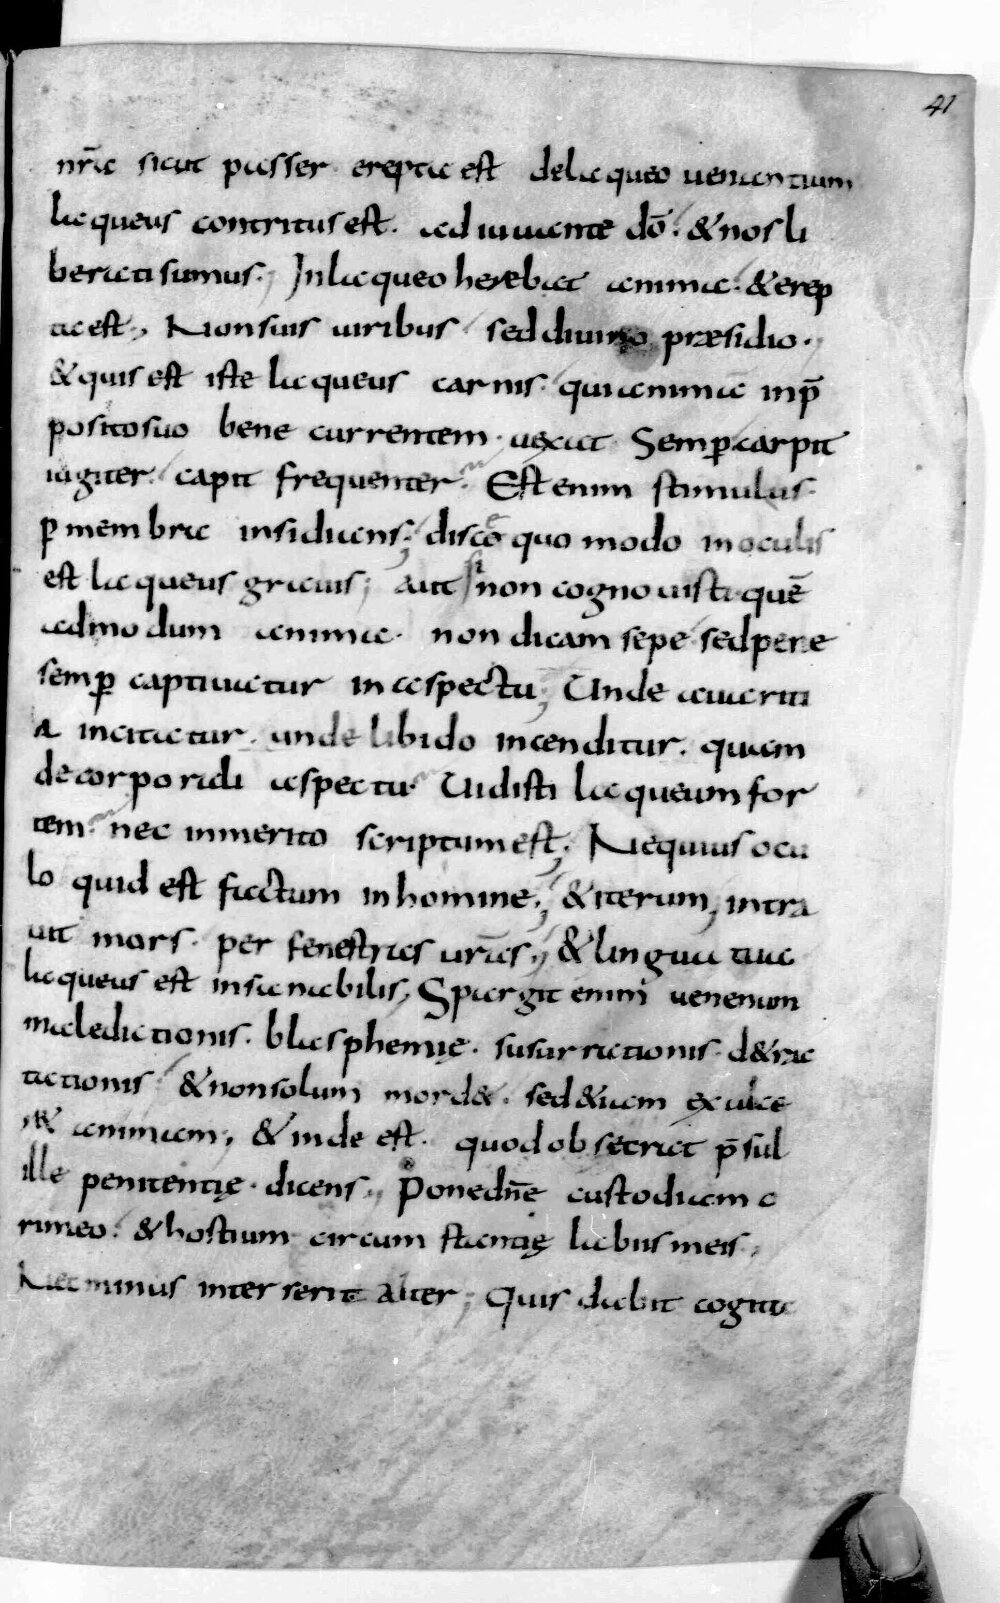 41
nr̄a sicut passer · erepta est delaqueo uenantium
laqueus contritus est · adiuuante dō · & nos li
berati sumus ·, Inlaqueo herebat anima · & erep
ta est ·, Non suis uiribus sed diuino præsidio ·,
& quis est iste laqueus carnis · qui animā inp̄
positosuo bene currentem · uexat Semꝑ carpit
iugiter · capit frequenter · Est enim stimulus ·
ꝑ membra insidians ; disce quo modo inoculis
est laqueus grauis ; aut si non cognouisti quē
admodum anima · non dicam sepe sed pene
semꝑ captiuatur in aspectu ; Unde auariti
a incitatur · unde libido incenditur · quam
decorporali aspectu · Uidisti laqueum for
tem · nec inmerito scriptum est ; Nequius ocu
lo quid est factum in homine ; & iterum ; intra
uit mors · per fenestras ur̄as ; & lingua tua
laqueus est insanabilis, Spargit enim uenenum
maledictionis · blasphemię · susurrationis · d&rac
tationis · & nonsolum mord& · sed &iam exulce
r& animam ; & inde est · quod obsecrat p̄sul
ille penitentię · dicens ; Ponedn̄e custodiam o
rimeo · & hostium circum stantię labiis meis ,
Nec minus inter serit alter ; Quis dabit cogita